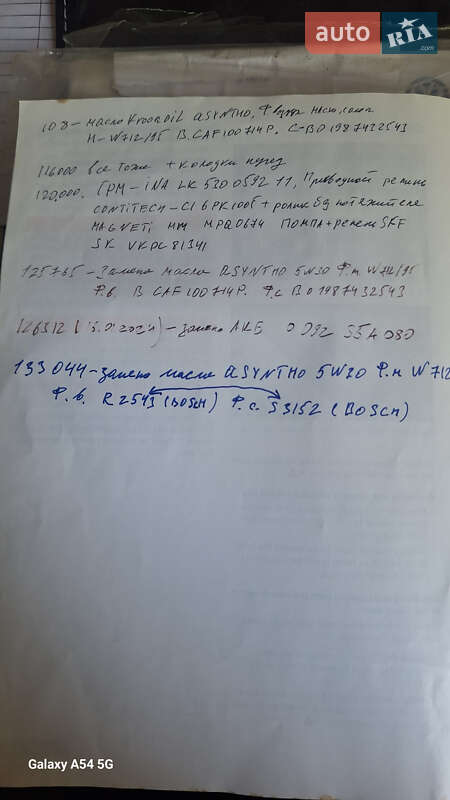 auto RIA .com
108 - масло Kroonoil ASYNTHO, Ф возд масл, салон
М-W712/95 В.CAF100714P. С-B01987432543
116000 все тоже + колодки перед
120,000. ГРМ-INA LK 530 0592 11, Приводной ремень
CONTITECH-CT 6PK1006 + ролик без натяжителя
MAGNETI MM MPQ0674 ПОМПА+ремень SKF
SK VKPC 81341
125765 - Замена масла ASYNTHO 5W30 Ф.м W712/95
Ф.в. B CAF100714P. Ф.с B01987432543
126312 (15.01.2024) - замена АКБ
133044 - замена масла ASYNTHO 5W30 Ф.м W712
Ф.в. R2543 (BOSCH) Ф.с. S3152 (BOSCH)
Galaxy A54 5G